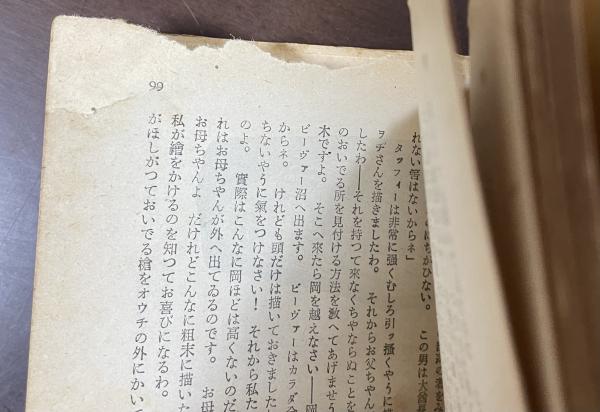 にちがひない。　この男は大酋長
れない筈はないからネ」
タッフィーは非常に強くむしろ引ッ掻くやうに描
ヲヂさんを描きましたわ。　それからお父ちゃん
したわ――それを持つて來なくちやならぬことを
のおいでる所を見付ける方法を敎へてあげませう
木ですよ。　そこへ來たら岡を越えなさい――岡
ビーヴァー沼へ出ます。　ビーヴァーはカラダ全
からネ。　けれども頭だけは描いておきました
ちないやうに氣をつけなさい！　それから私た
のよ。　實際はこんなに岡ほどは高くないのだ
れはお母ちやんが外へ出てゐるのです。　お母
お母ちやんよ　だけれどこんなに粗末に描いた
私が繪をかけるのを知つてお喜びになるわ。
がほしがつておいでる槍をオウチの外にかいて
99